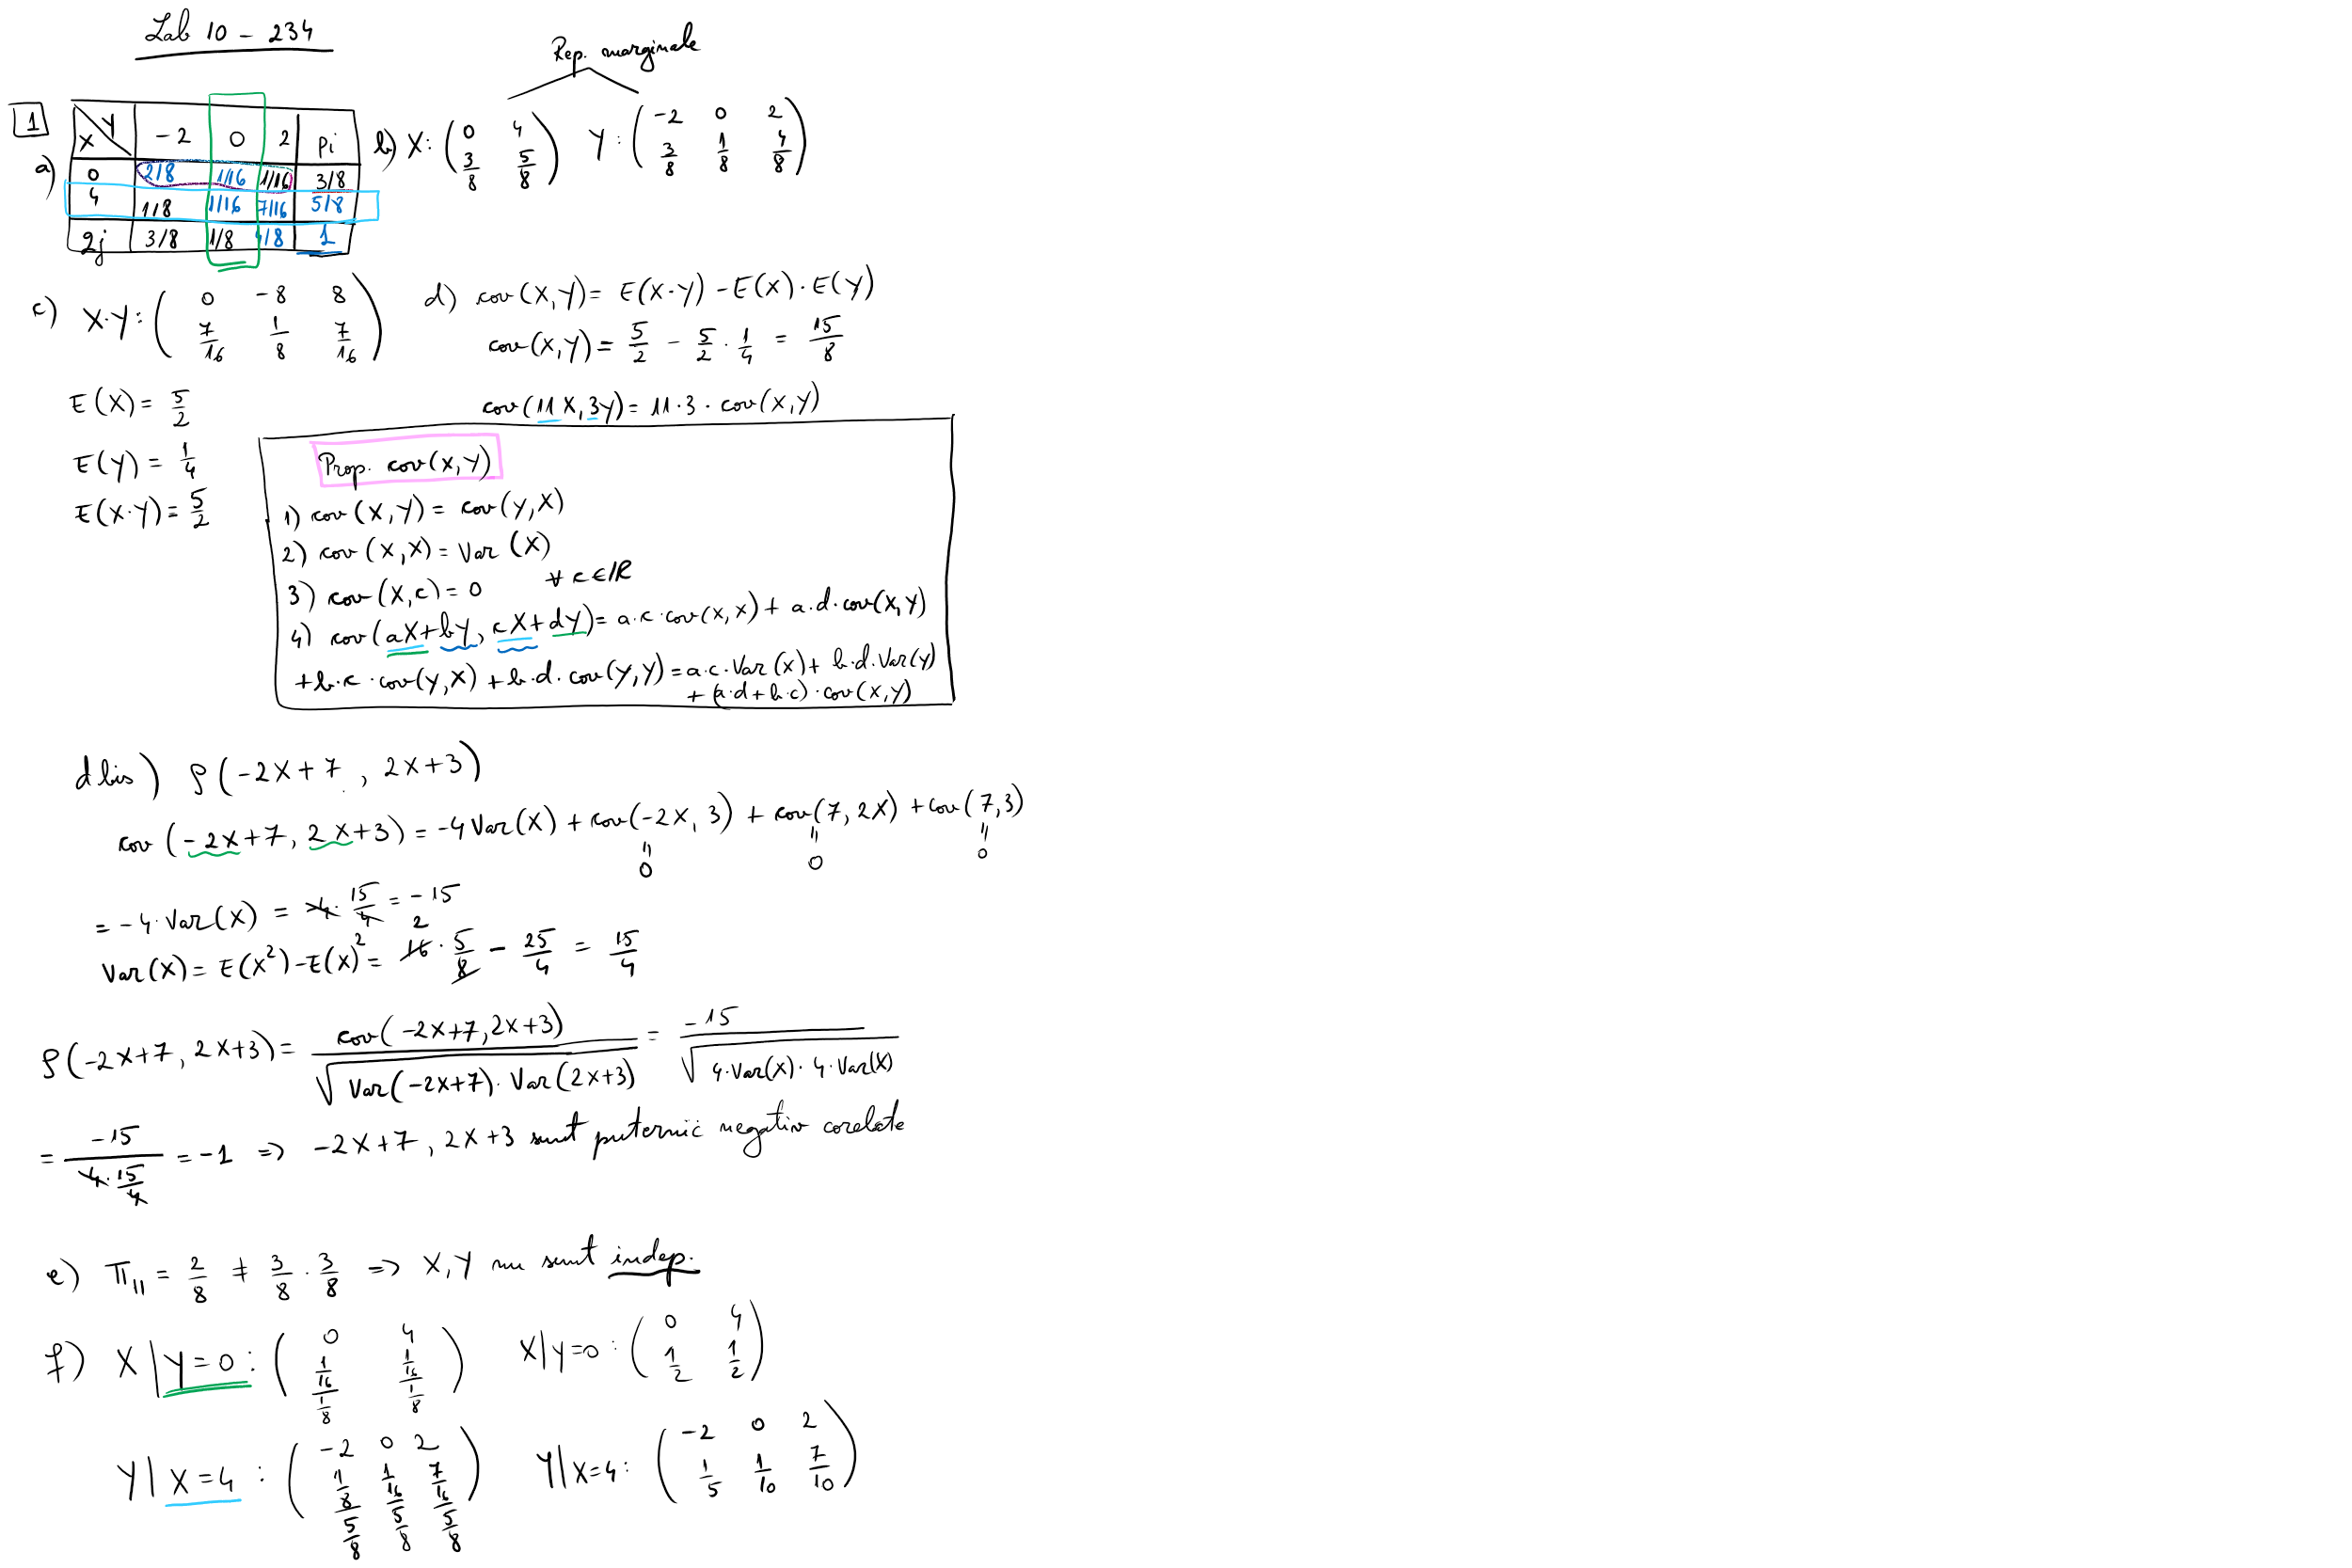 Lab 10 - 234
Rep. marginale
1
a)
X\Y | -2 | 0 | 2 | pi
0 | 2/8 | 1/16 | 1/16 | 3/8
4 | 1/8 | 1/16 | 7/16 | 5/8
2j | 3/8 | 1/8 | 4/8 | 1
b) X: (0 4; 3/8 5/8) Y: (-2 0 2; 3/8 1/8 4/8)
c) X·Y: (0 -8 8; 7/16 1/8 7/16)
E(X) = 5/2
E(Y) = 1/4
E(X·Y) = 5/2
d) cov(X,Y) = E(X·Y) - E(X)·E(Y)
cov(X,Y) = 5/2 - 5/2 · 1/4 = 15/8
cov(11X, 3Y) = 11·3·cov(X,Y)
Prop. cov(X,Y)
1) cov(X,Y) = cov(Y,X)
2) cov(X,X) = Var(X)
3) cov(X,c) = 0 ∀ c∈IR
4) cov(aX+bY, cX+dY) = a·c·cov(X,X) + a·d·cov(X,Y)
+b·c·cov(Y,X) + b·d·cov(Y,Y) = a·c·Var(X) + b·d·Var(Y)
+ (a·d+b·c)·cov(X,Y)
d bis) ρ(-2X+7, 2X+3)
cov(-2X+7, 2X+3) = -4Var(X) + cov(-2X, 3) + cov(7, 2X) + cov(7,3)
" " "
0 0 0
= -4·Var(X) = -4·15/4 = -15
2
Var(X) = E(X²) - E(X)² = 16·5/8 - 25/4 = 15/4
ρ(-2X+7, 2X+3) = cov(-2X+7, 2X+3)/√(Var(-2X+7)·Var(2X+3)) = -15/√(4·Var(X)·4·Var(X))
= -15/(4·15/4) = -1 => -2X+7, 2X+3 sunt puternic negativ corelate
e) π₁₁ = 2/8 ≠ 3/8 · 3/8 => X,Y nu sunt indep.
f) X|Y=0: (0 4; (1/16)/(1/8) (1/16)/(1/8)) X|Y=0: (0 4; 1/2 1/2)
Y|X=4: (-2 0 2; (1/8)/(5/8) (1/16)/(5/8) (7/16)/(5/8)) Y|X=4: (-2 0 2; 1/5 1/10 7/10)